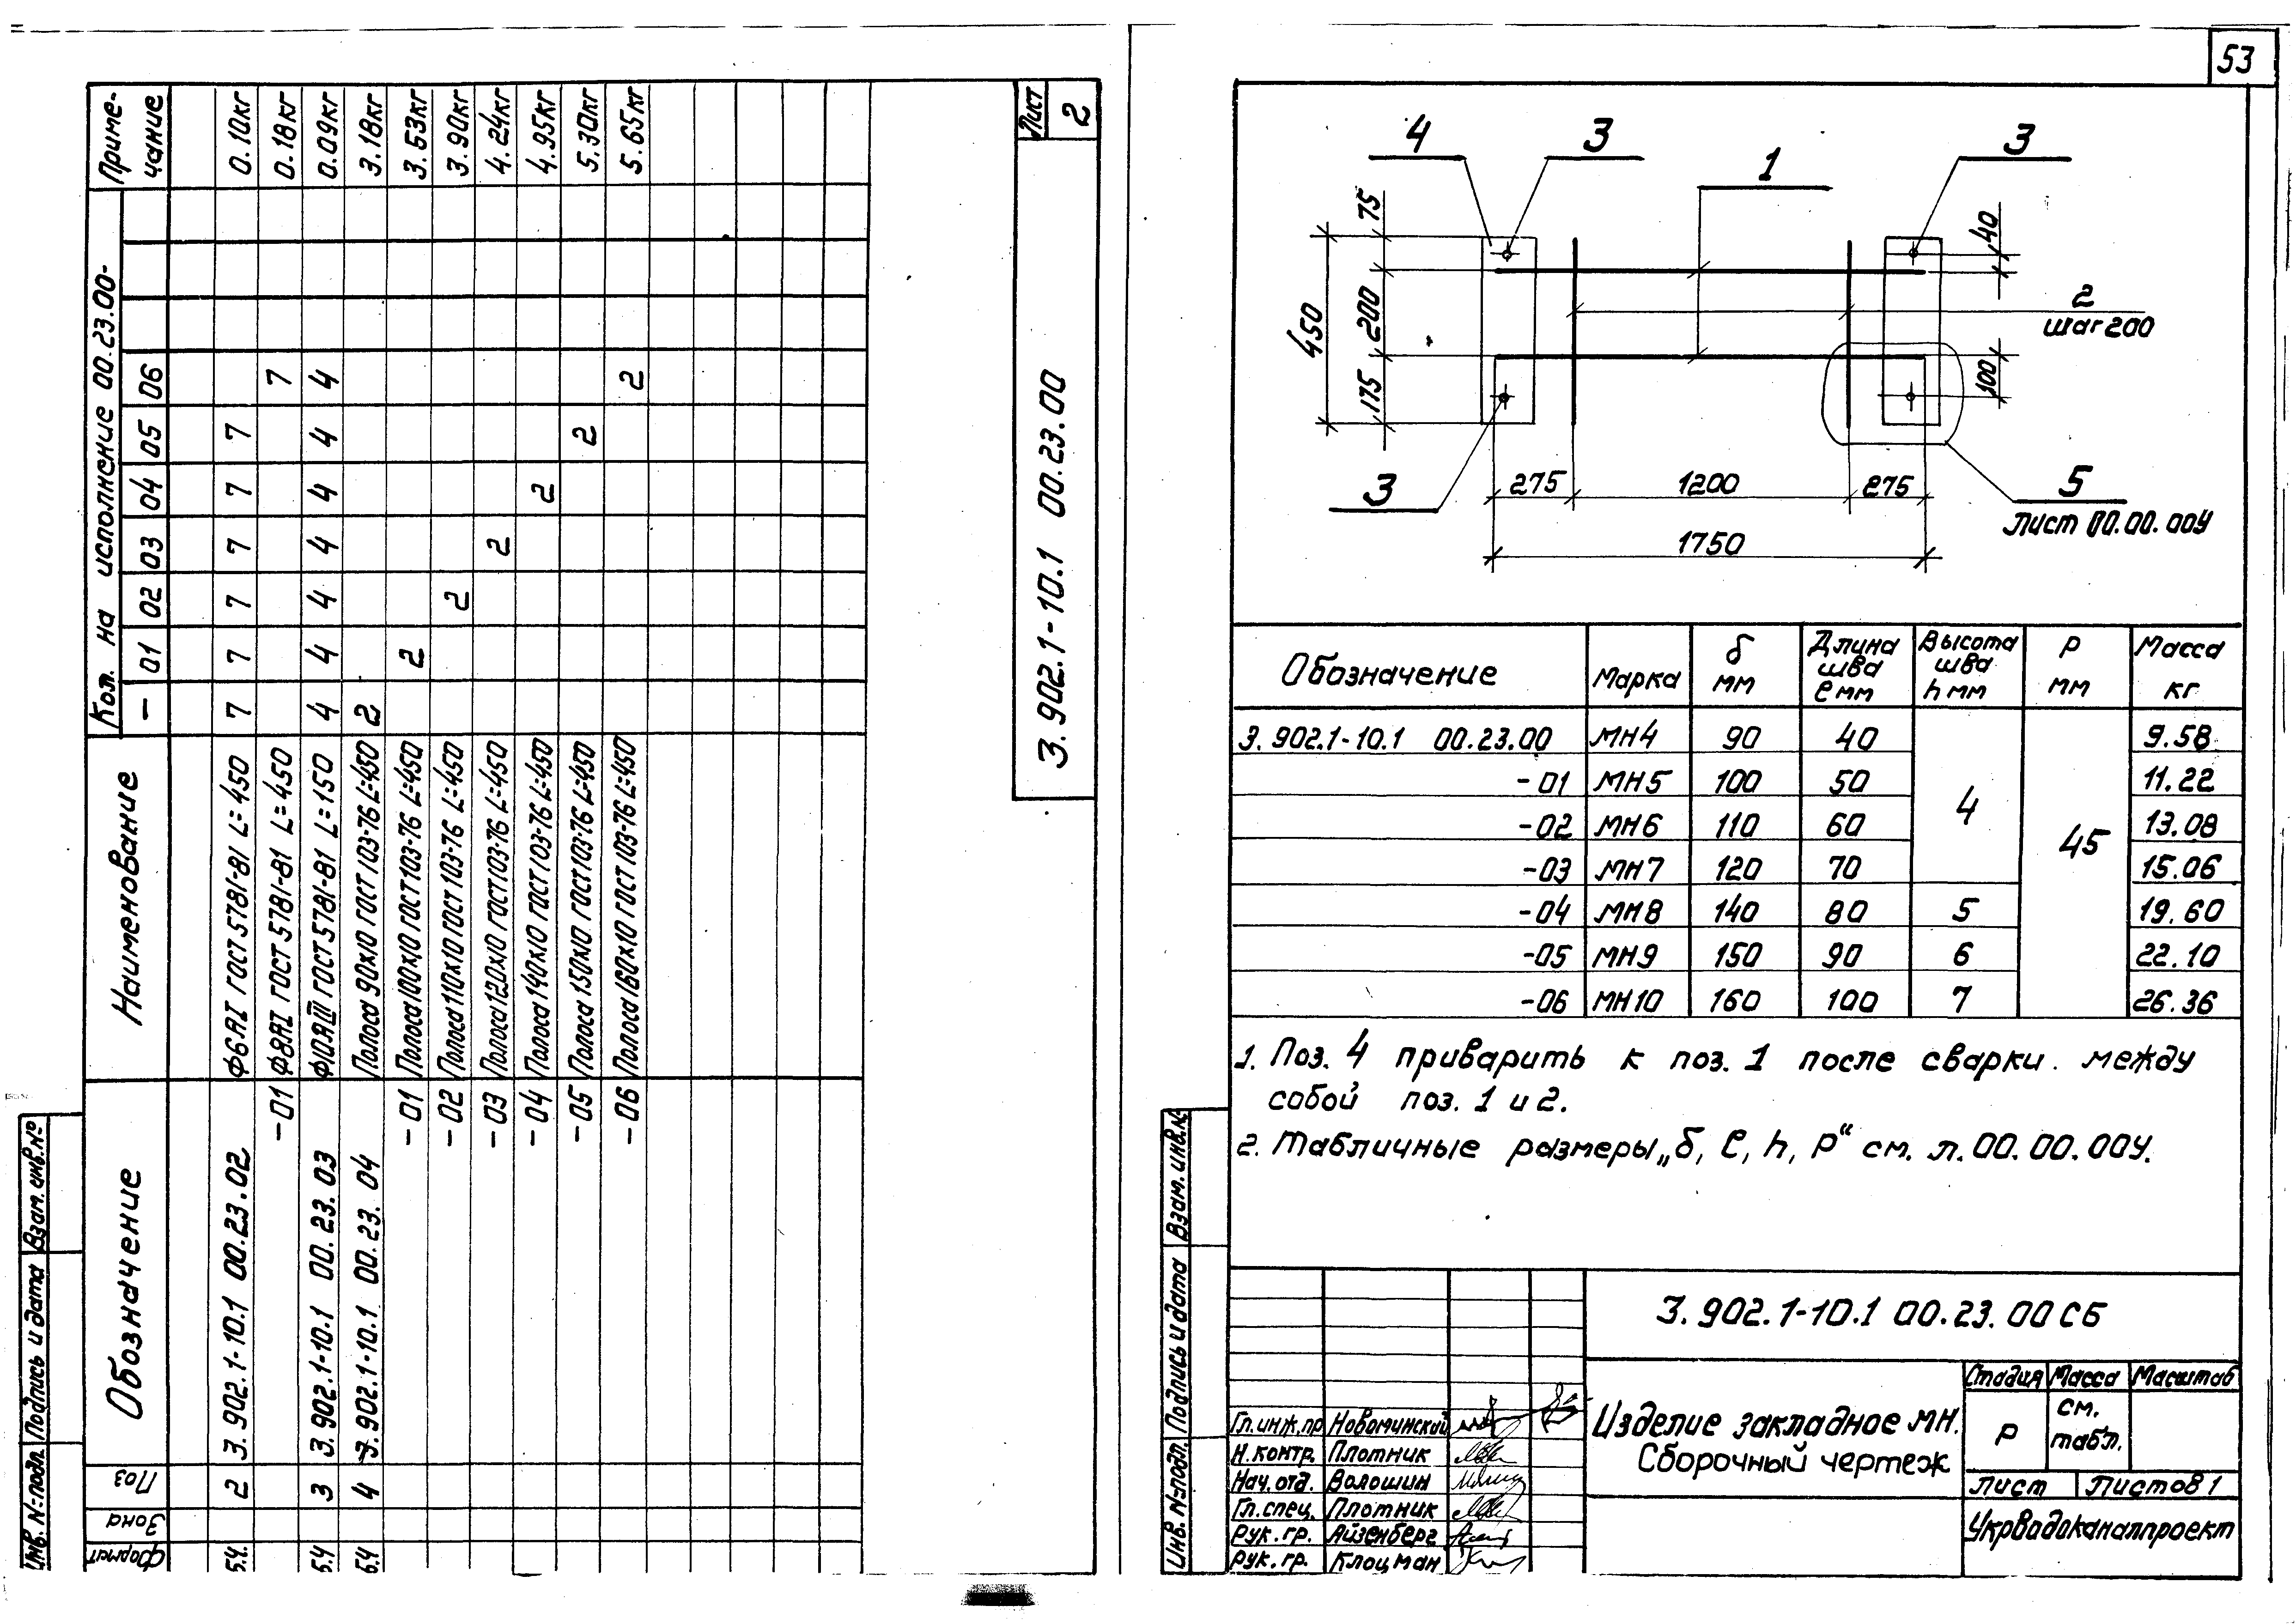 Формат Зона Поз Обозначение Наименование Кол. на исполнение 00.23.00- Приме-
чание
— 01 02 03 04 05 06
Б.Ч. 2 3.902.1-10.1 00.23.02 Ф6АI ГОСТ 5781-81 L=450 7 7 7 7 7 7 0.10кг
-01 Ф8АI ГОСТ 5781-81 L=450 7 0.18кг
Б.Ч 3 3.902.1-10.1 00.23.03 Ф10АIII ГОСТ 5781-81 L=150 4 4 4 4 4 4 4 0.09кг
Б.Ч 4 3.902.1-10.1 00.23.04 Полоса 90х10 ГОСТ 103-76 L=450 2 3.18кг
-01 Полоса 100х10 ГОСТ 103-76 L=450 2 3.53кг
-02 Полоса 110х10 ГОСТ 103-76 L=450 2 3.90кг
-03 Полоса 120х10 ГОСТ 103-76 L=450 2 4.24кг
-04 Полоса 140х10 ГОСТ 103-76 L=450 2 4.95кг
-05 Полоса 150х10 ГОСТ 103-76 L=450 2 5.30кг
-06 Полоса 160х10 ГОСТ 103-76 L=450 2 5.65кг
3.902.1-10.1 00.23.00
Лист
2
Инв. № подл. Подпись и дата Взам. инв. №
53
4 3 1 3
75
40
450
200
2
шаг 200
175
100
3
275 1200 275
5
Лист 00.00.00У
1750
Обозначение Марка δ мм Длина шва ℓ мм Высота шва h мм P мм Масса кг
3.902.1-10.1 00.23.00 МН4 90 40 4 45 9.58
-01 МН5 100 50 11.22
-02 МН6 110 60 13.08
-03 МН7 120 70 15.06
-04 МН8 140 80 5 19.60
-05 МН9 150 90 6 22.10
-06 МН10 160 100 7 26.36
1. Поз. 4 приварить к поз. 1 после сварки между
собой поз. 1 и 2.
2. Табличные размеры „δ, ℓ, h, P“ см. л. 00.00.00У.
Инв. № подл. Подпись и дата Взам. инв. №
3.902.1-10.1 00.23.00 СБ
Гл. инж. пр Новоминский
Н. контр. Плотник
Нач. отд. Волошин
Гл. спец. Плотник
Рук. гр. Айзенберг
Рук. гр. Клоцман
Изделие закладное МН.
Сборочный чертеж
Стадия Масса Масштаб
Р см. табл.
Лист Листов 1
Укрводоканалпроект